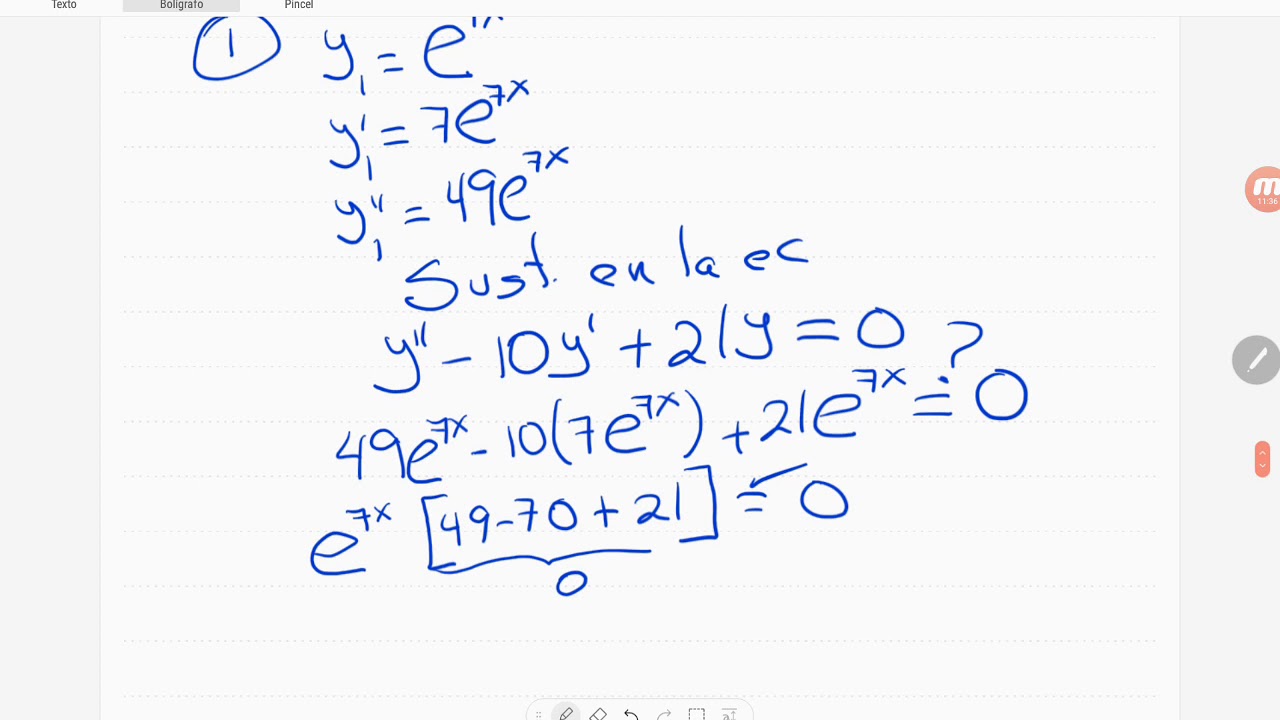 Texto Bolígrafo Pincel
① y₁ = e⁷ˣ
y₁' = 7e⁷ˣ
y₁'' = 49e⁷ˣ
Sust. en la ec
y'' - 10y' + 21y = 0
49e⁷ˣ - 10(7e⁷ˣ) + 21e⁷ˣ =? 0
e⁷ˣ [49-70+21] = 0
0
11:36